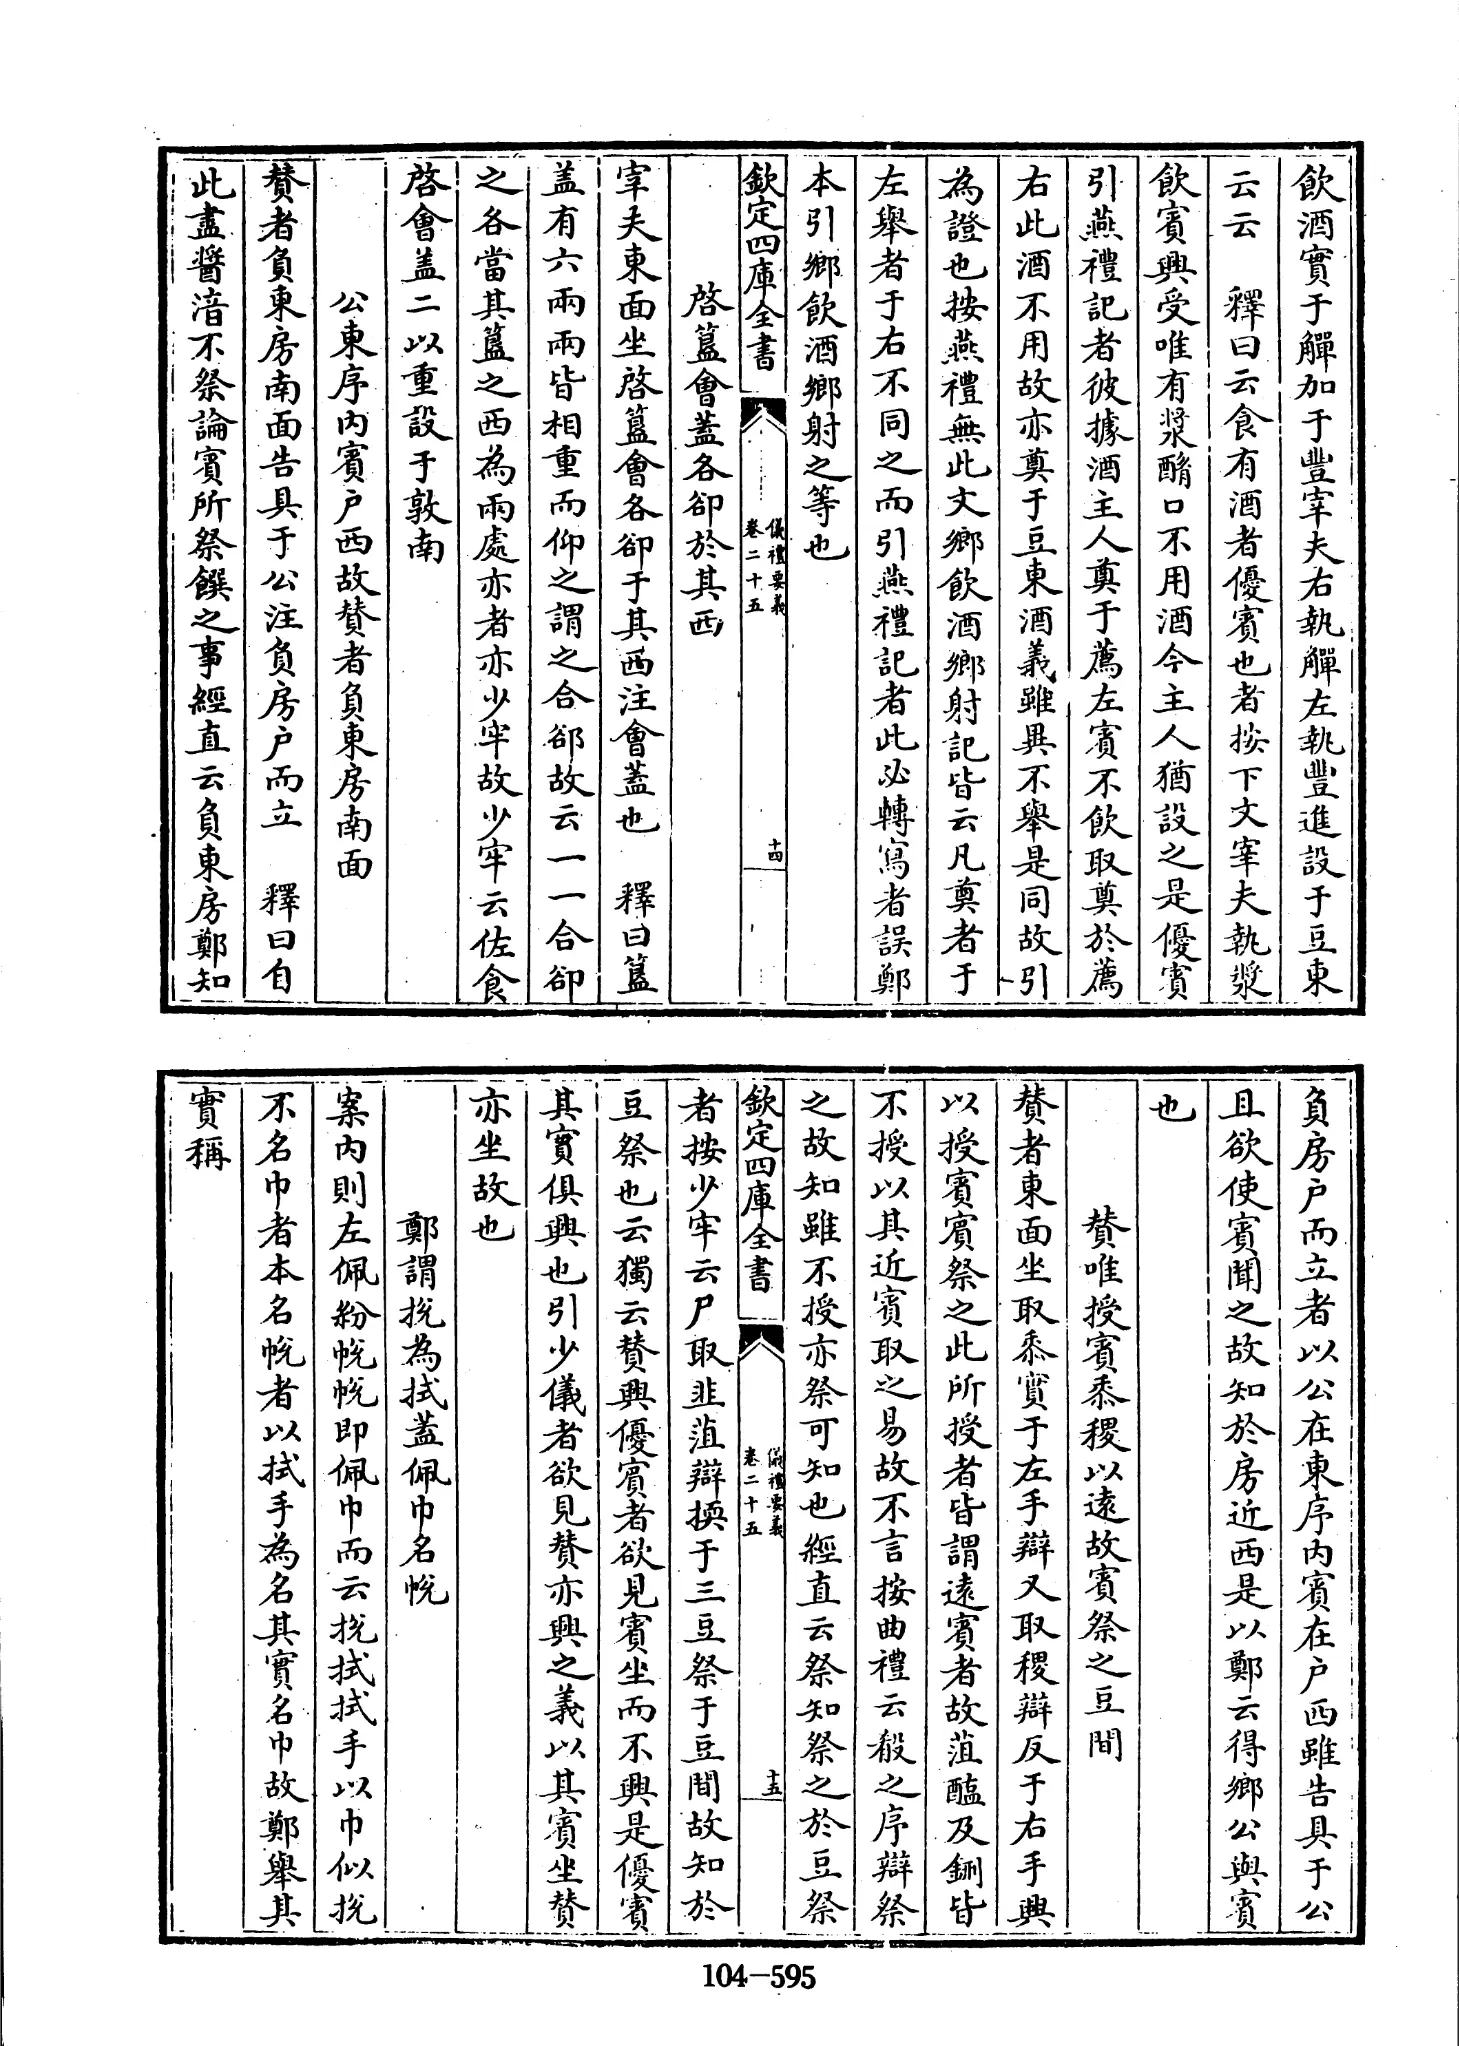 飲酒實于觶加于豐宰夫右執觶左執豐進設于豆東
云云　釋曰云食有酒者優賓也者按下文宰夫執漿
飲賓興受唯有漿酳口不用酒今主人猶設之是優賓
引燕禮記者彼據酒主人奠于薦左賓不飲取奠於薦
右此酒不用故亦奠于豆東酒義雖異不舉是同故引
為證也按燕禮無此文鄉飲酒鄉射記皆云凡奠者于
左舉者于右不同之而引燕禮記者此必轉寫者誤鄭
本引鄉飲酒鄉射之等也
欽定四庫全書
儀禮要義
卷二十五
十四
啓簋會蓋各卻於其西
宰夫東面坐啓簋會各卻于其西注會蓋也　釋曰簋
盖有六兩兩皆相重而仰之謂之合郤故云一一合卻
之各當其簋之西為兩處亦者亦少牢故少牢云佐食
啓會盖二以重設于敦南
公東序内賓户西故贊者負東房南面
贊者負東房南面告具于公注負房户而立　釋曰自
此盡醬湆不祭論賓所祭饌之事經直云負東房鄭知
負房户而立者以公在東序内賓在户西雖告具于公
且欲使賓聞之故知於房近西是以鄭云得鄉公與賓
也
贊唯授賓黍稷以遠故賓祭之豆間
贊者東面坐取黍實于左手辯又取稷辯反于右手興
以授賓賓祭之此所授者皆謂遠賓者故菹醢及鉶皆
不授以其近賓取之易故不言按曲禮云殽之序辯祭
之故知雖不授亦祭可知也經直云祭知祭之於豆祭
欽定四庫全書
儀禮要義
卷二十五
十五
者按少牢云尸取韭菹辯擩于三豆祭于豆間故知於
豆祭也云獨云贊興優賓者欲見賓坐而不興是優賓
其實俱興也引少儀者欲見贊亦興之義以其賓坐贊
亦坐故也
鄭謂挩為拭蓋佩巾名帨
案内則左佩紛帨帨即佩巾而云挩拭拭手以巾似挩
不名巾者本名帨者以拭手為名其實名巾故鄭舉其
實稱
104-595